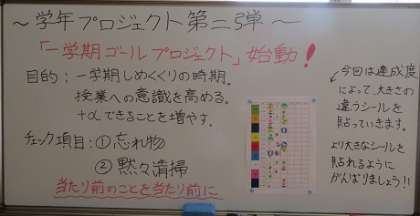 ～学年プロジェクト第二弾～
「一学期ゴールプロジェクト」始動！
目的：一学期しめくくりの時期。
授業への意識を高める。
+αできることを増やす。
チェック項目：①忘れ物
②黙々清掃
当たり前のことを当たり前に
今回は達成度
によって、大きさの
違うシールを
貼っていきます。
より大きなシールを
貼れるように
がんばりましょう!!